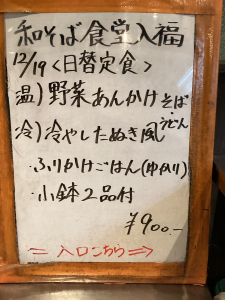 和そば食堂入福
12/19<日替定食>
温)野菜あんかけそば
冷)冷やしたぬき風うどん
・ふりかけごはん(ゆかり)
・小鉢2品付
¥900.-
⇐ 入口こちら⇒